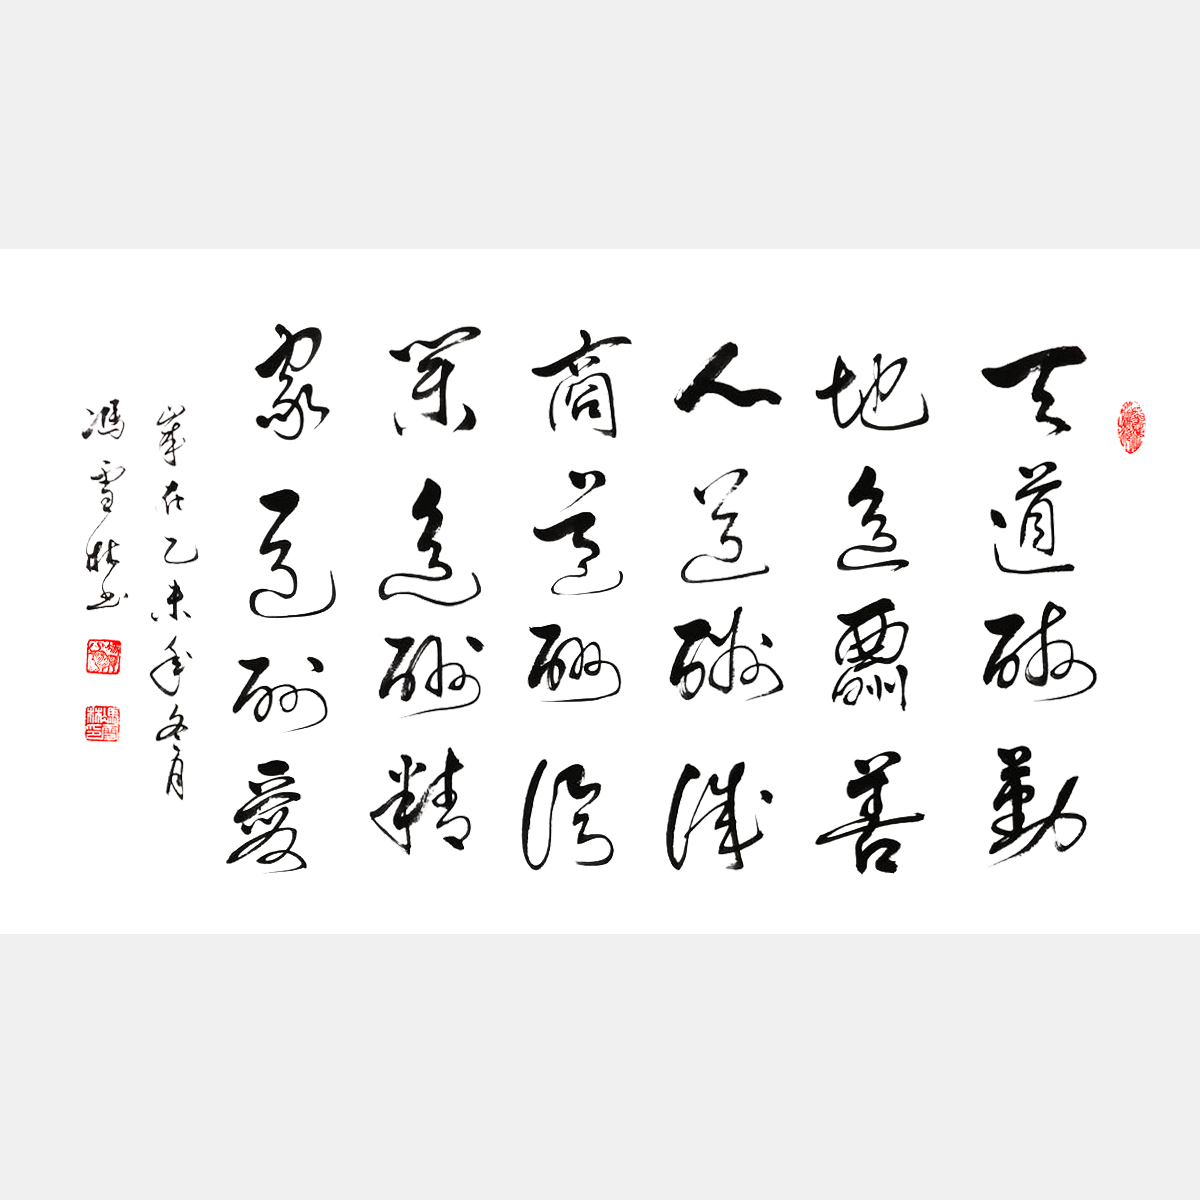 天道酬勤
地道酬善
人道酬诚
商道酬信
業道酬精
家道酬愛
歲在乙未年冬月
馮雪林书